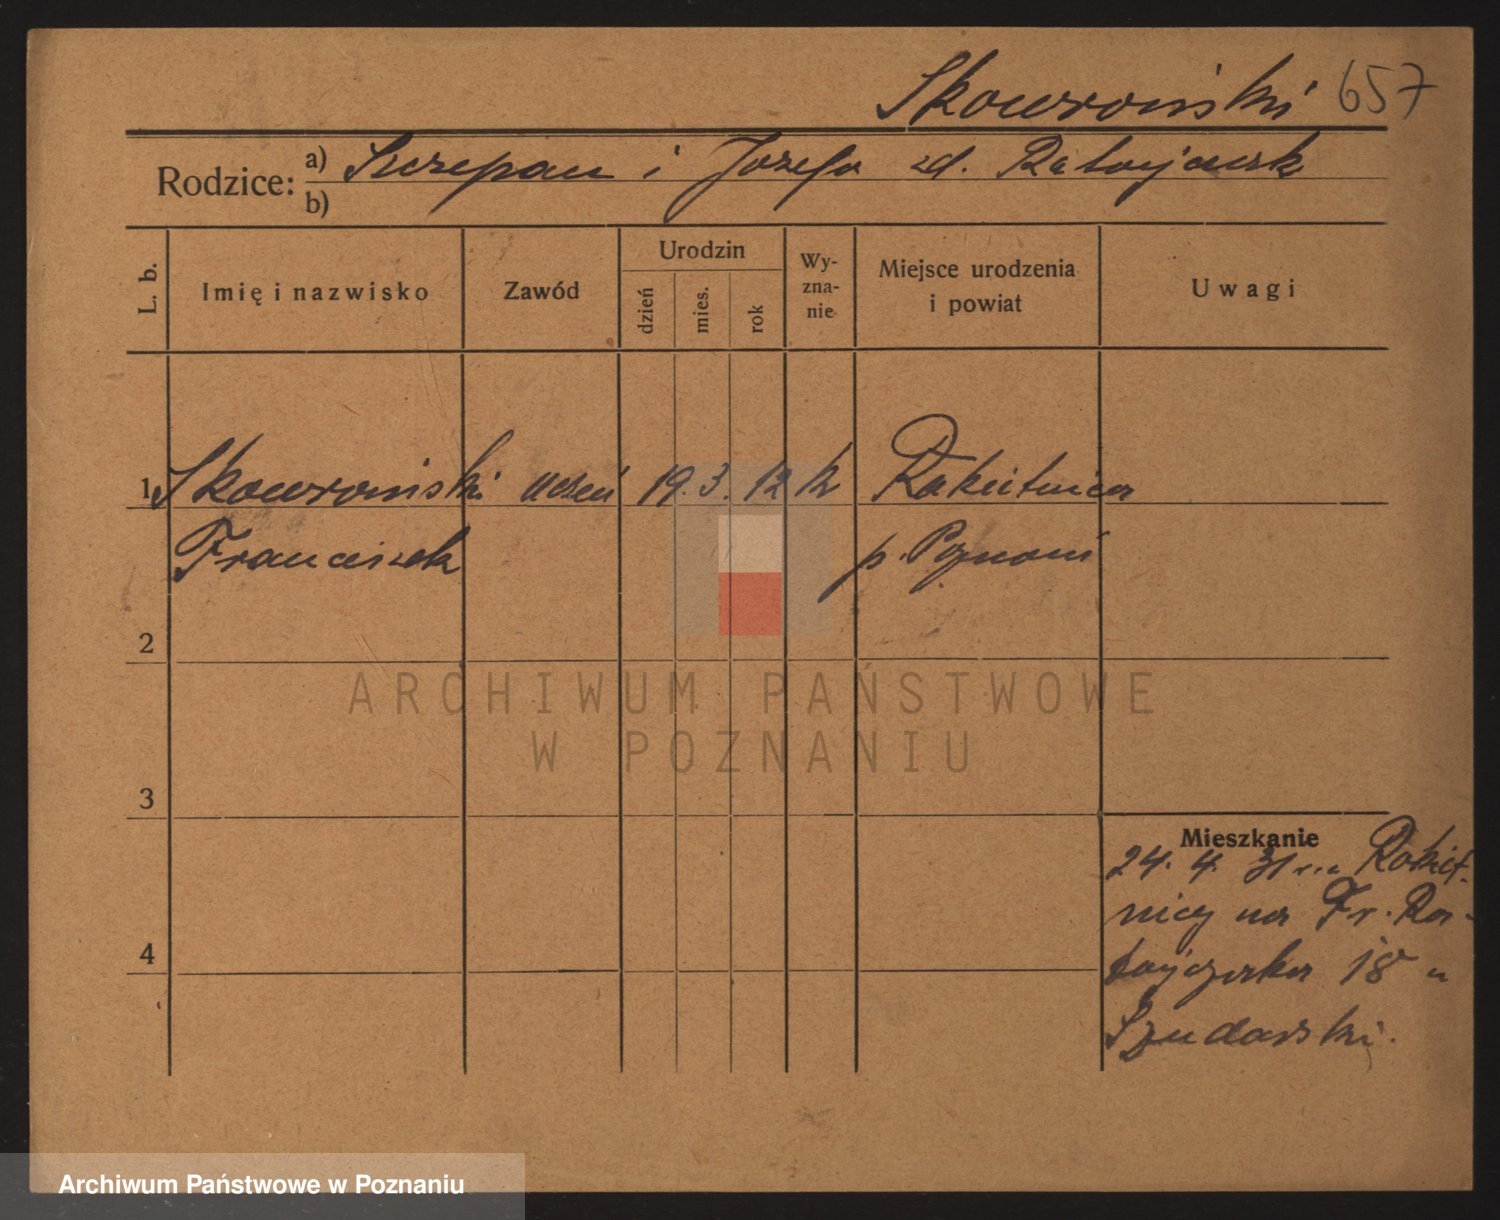 Skowroński 657
Rodzice: a) Szczepan i Józefa zd. Ratajczak
b)
L. b.
Imię i nazwisko
Zawód
Urodzin
dzień
mies.
rok
Wy-
zna-
nie
Miejsce urodzenia
i powiat
Uwagi
1 Skowroński uczeń 19. 3. 12 k Rokietnica
Franciszek p. Poznań
2
3
4
Mieszkanie
24. 4. 31 Rokiet-
nicy na Fr. Ra-
tajczaka 18 u
Szudarski.
ARCHIWUM PAŃSTWOWE
W POZNANIU
Archiwum Państwowe w Poznaniu